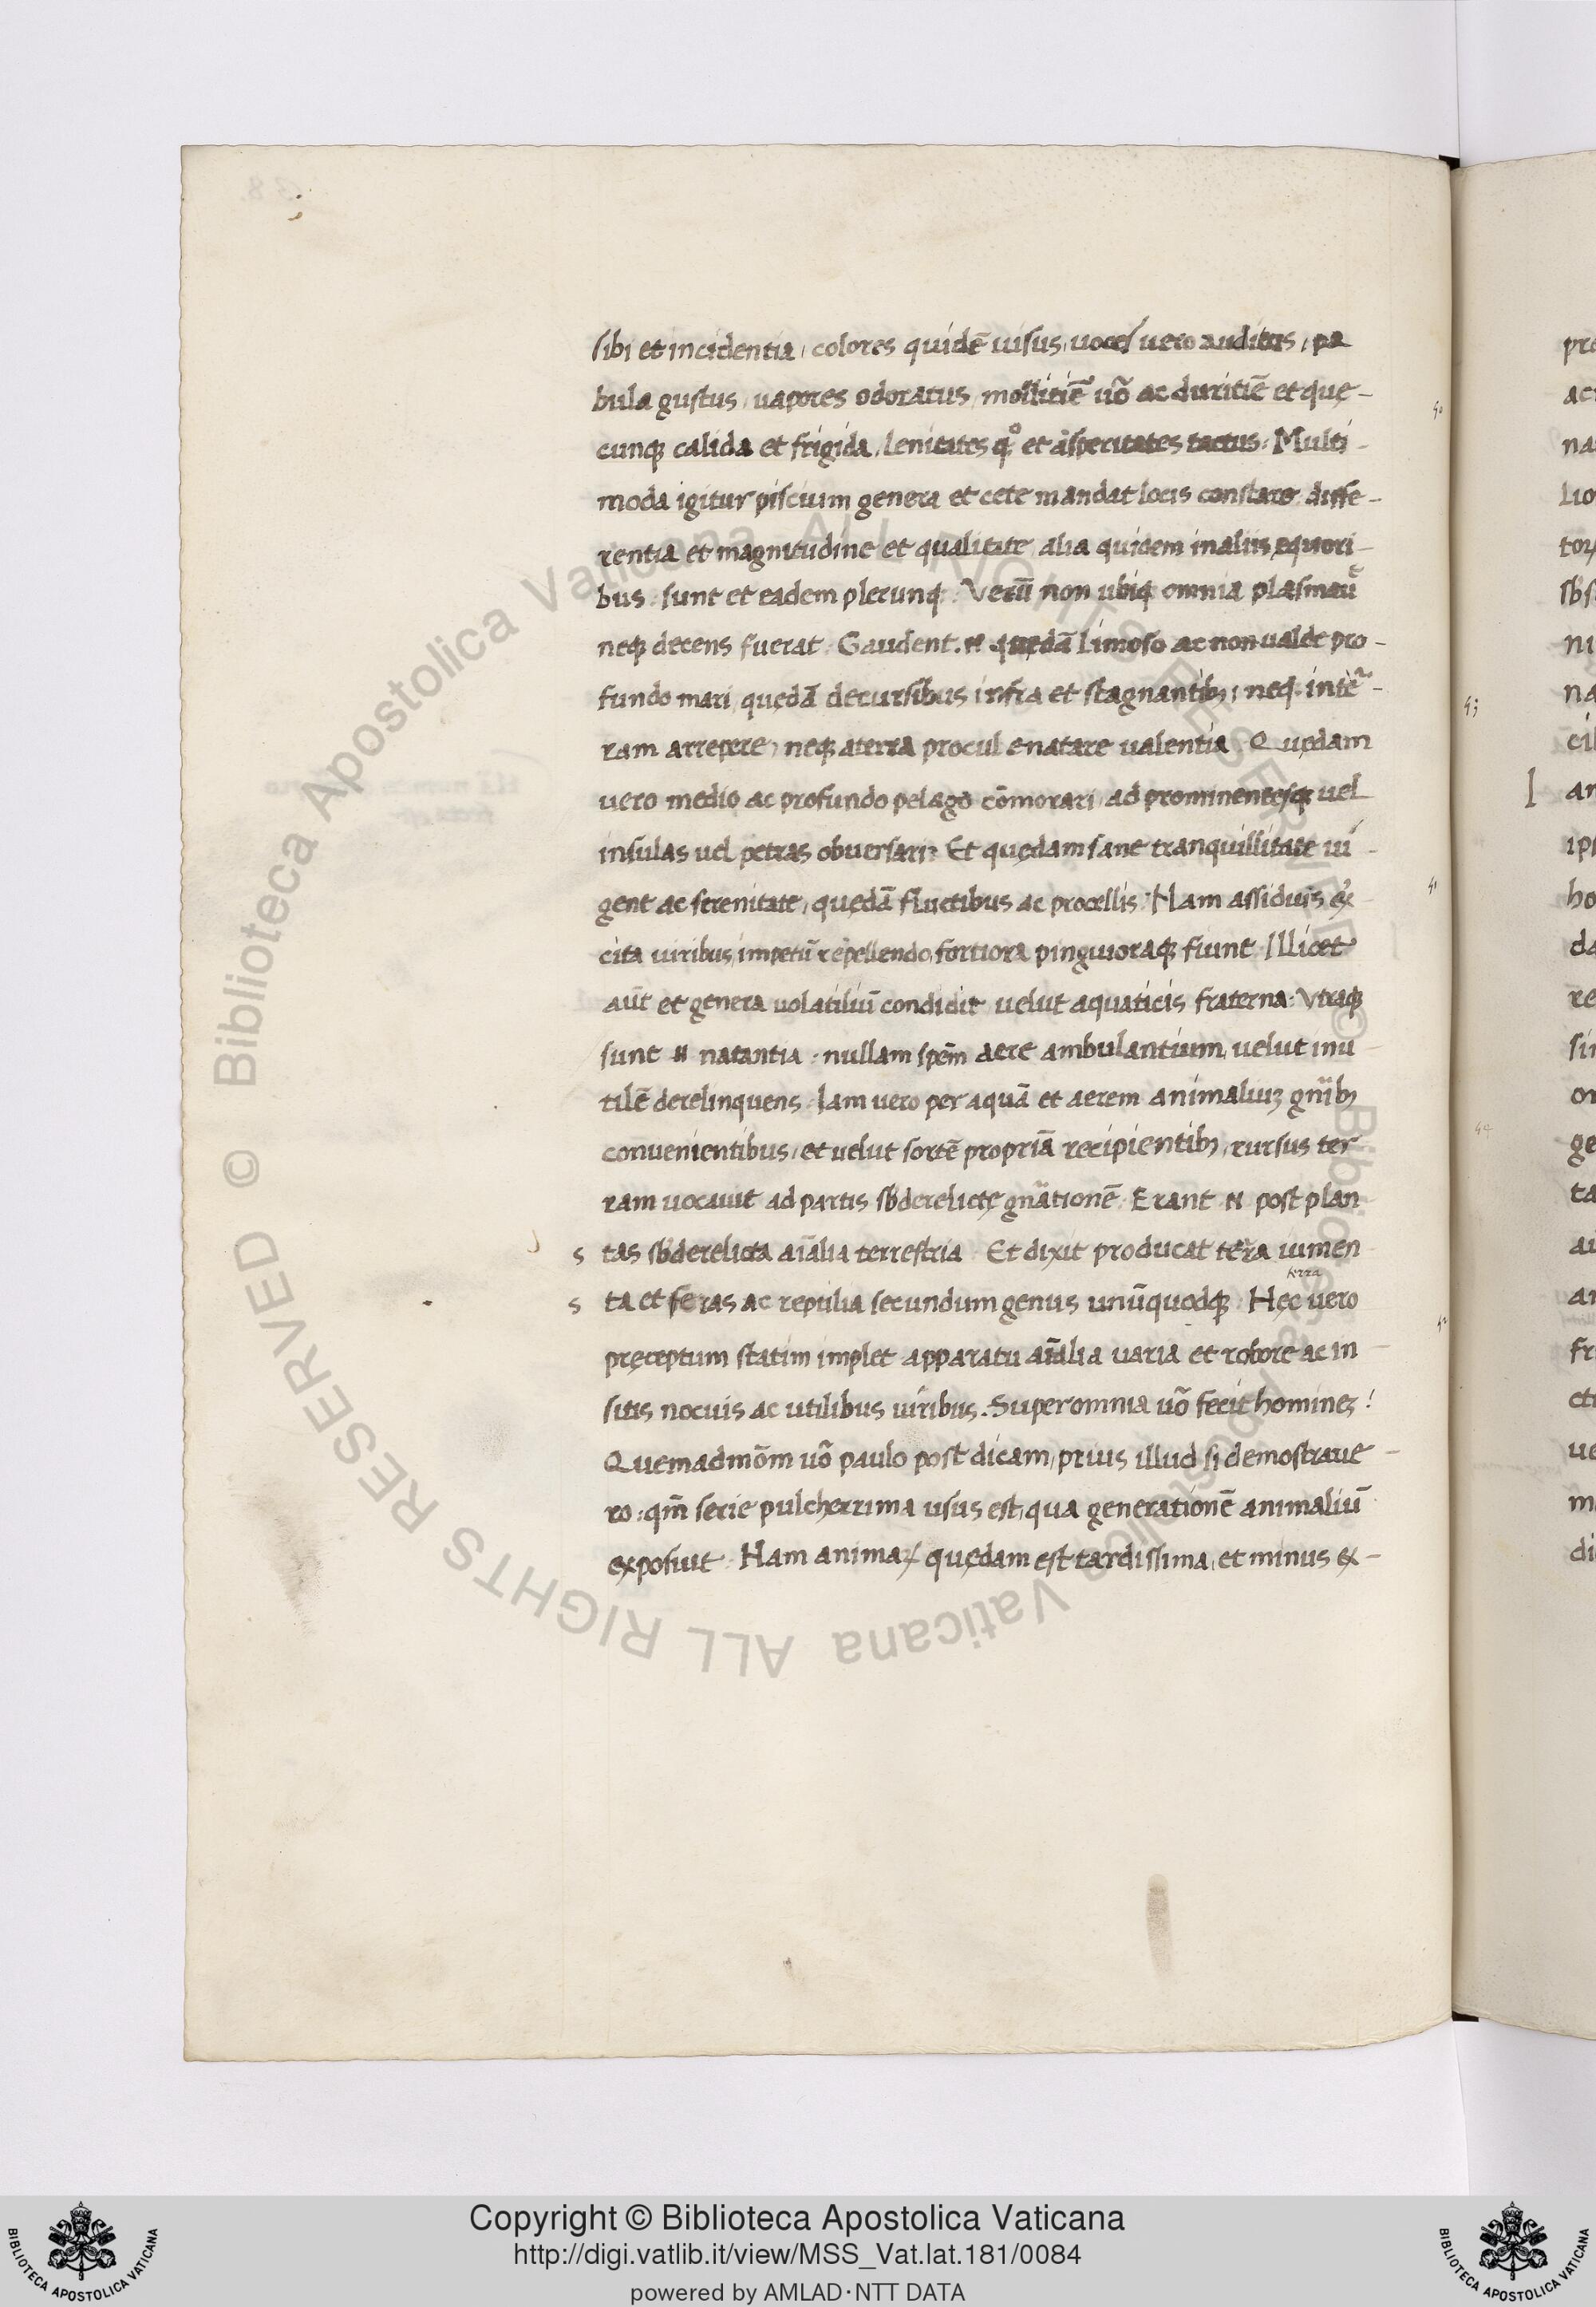 sibi et incidentia, colores quidē uisus, uoces uero auditus, pa
bula gustus, uapores odoratus, mollitiē uō ac duritiē et quę-
cunq̨ calida et frigida, lenitates qͦ et asperitates tactus: Multi-
moda igitur piscium genera et cete mandat locis constare diffe-
rentia et magnitudine et qualitate, alia quidem in aliis equori-
bus: sunt et eadem plerunq̨: Verū non ubiq̨ omnia plasmaū
neq̨ decens fuerat. Gaudent .n. quędā limoso ac non ualde pro-
fundo mari, quędā decursibus infra et stagnantib; neq̨ in tēr-
ram arrepere, neq̨ a terra procul enatare ualentia. Quędam
uero medio ac profundo pelago cōmorari, ad prominentesq̨ uel
insulas uel petras obuersari: Et quędam sane tranquillitate ui-
gent ac serenitate, quędā fluctibus ac procellis: Nam assiduis ex
cita uiribus, impetū repellendo, fortiora pinguioraq̨ fiunt. Illicet
aūt et genera uolatiliū condidit uelut aquaticis fraterna: Vtraq̨
sunt n natantia: nullam spēm aere ambulantium, uelut inu
tilē derelinquens. Iam uero per aquā et aerem animaliuʒ gn̄ib;
conuenientibus, et uelut sortē propriā recipientib;, rursus ter
ram uocauit ad partis sb̄derelictę gn̄ationē. Erant N post plan
s tas sb̄derelicta aīalia terrestria. Et dixit producat terra iumen
terra
s ta et feras ac reptilia secundum genus unūquodq̨. Hęc uero
pręceptum statim implet apparatu aīalia uaria et robore ac in
sitis nocuis ac utilibus uiribus. Super omnia uō fecit homineʒ!
Quemadmōm uō paulo post dicam, prius illud si demostraue-
ro: qm̄ serie pulcherrima usus est, qua generationē animaliū
exposuit. Nam animaꝝ quędam est tardissima, et minus ex-
Copyright © Biblioteca Apostolica Vaticana
http://digi.vatlib.it/view/MSS_Vat.lat.181/0084
powered by AMLAD·NTT DATA